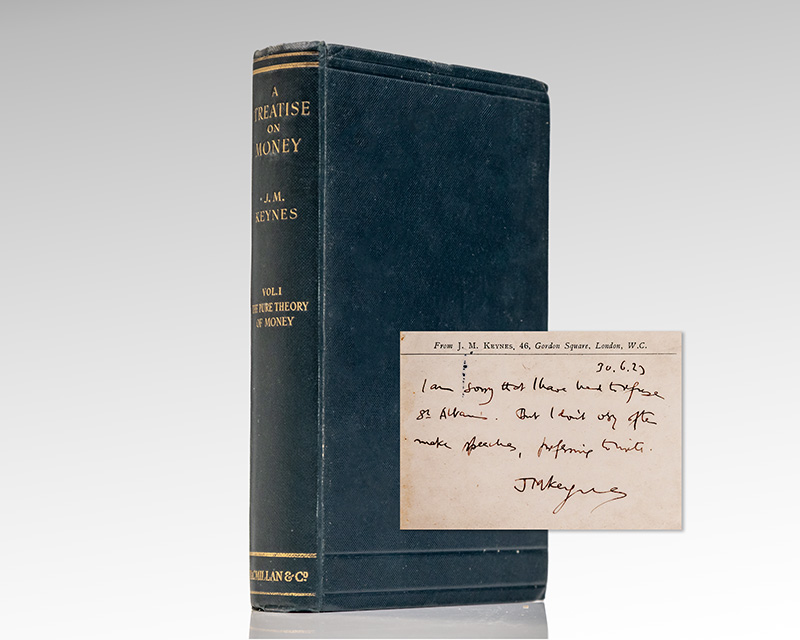 A
TREATISE
ON
MONEY
J. M.
KEYNES
VOL. I
THE PURE THEORY
OF MONEY
MACMILLAN & Co
From J. M. KEYNES, 46, Gordon Square, London, W.C.
30.6.23
I am sorry that I have had to refuse
St Albans. But I don't very often
make speeches, preferring to write.
JMKeynes